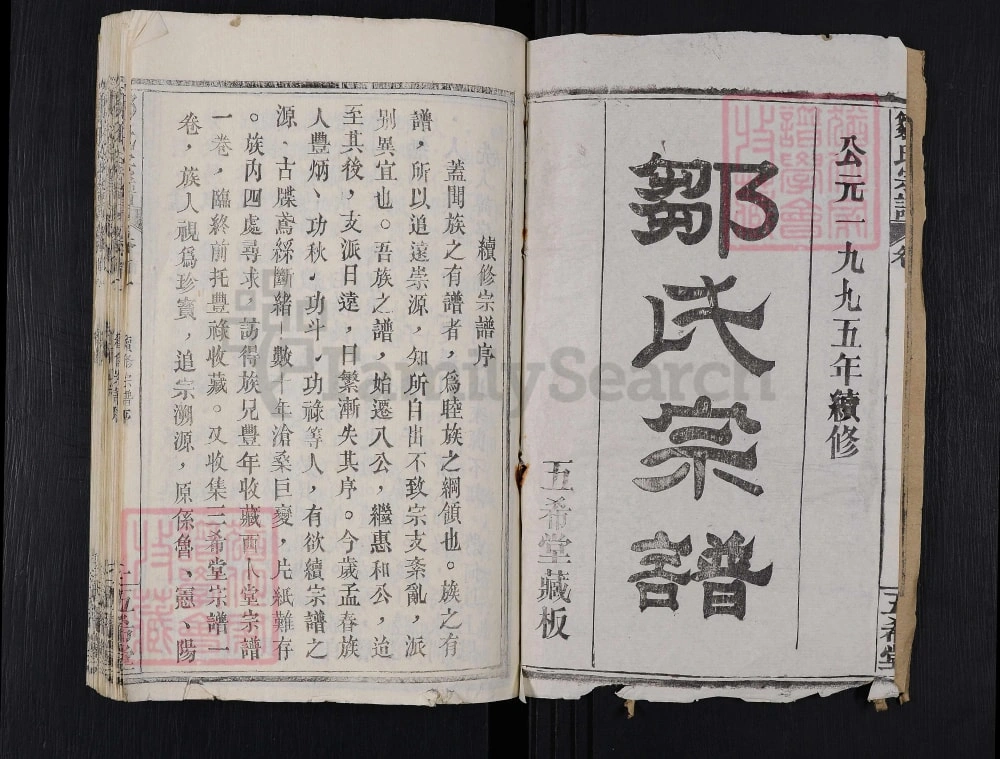 公元一九九五年續修
鄒氏宗譜
五希堂藏板
鄒氏宗譜 卷
五希堂
續修宗譜序
蓋聞族之有譜者，爲睦族之綱領也。族之有
譜，所以追遠崇源，知所自出不致宗支紊亂，派
別異宜也。吾族之譜，始遷八公，繼惠和公，迨
至其後，支派日遠，日繁漸失其序。今歲孟春族
人豐炳、功秋、功斗、功祿等人，有欲續宗譜之
源、古牒鳶綵斷緒，數十年滄桑巨變，片紙難存
。族內四處尋求，訪得族兄豐年收藏西人堂宗譜
一卷，臨終前托豐祿收藏。又收集三希堂宗譜一
卷，族人視爲珍寶，追宗溯源，原係魯、憲、陽
續修宗譜序
五希堂
FamilySearch